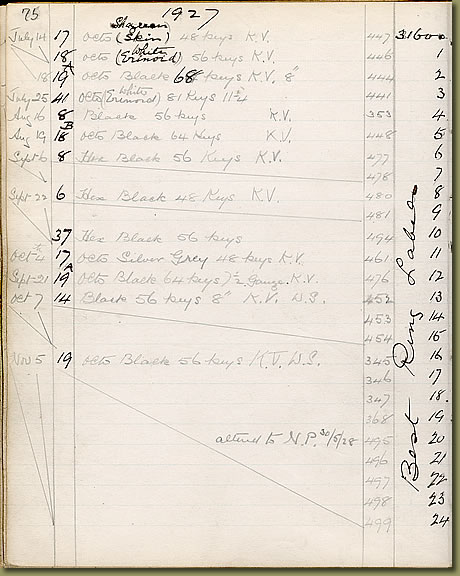 75 1927
July 14 17 Octo (Shagreen Skin) 48 keys K.V. 447 31600
18 Octo (White Erinoid) 56 keys K.V. 446 1
18 19A Octo Black 68 keys K.V. 8" 444 2
July 25 41 Octo (White Erinoid) 81 Keys 11¾ 441 3
Aug 16 8 Black 56 keys K.V. 353 4
Aug 19 18B Octo Black 64 Keys K.V. 448 5
Sept 6 8 Hex Black 56 Keys K.V. 477 6
478 7
Sept 22 6 Hex Black 48 Keys K.V. 480 8
481 9
37 Hex Black 56 keys 494 10
Oct 4 17 Octo Silver Grey 48 keys K.V. 461 11
Sept 21 19A Octo Black 64 keys Gauge K.V. 476 12
Oct 7 14 Black 56 keys 8" K.V. W.S. 452 13
453 14
454 15
Nov 5 19 Octo Black 56 keys K.V. W.S. 345 16
346 17
347 18
368 19
altered to N.P. 30/5/28 495 20
496 21
497 22
498 23
499 24
Best Ring Labels